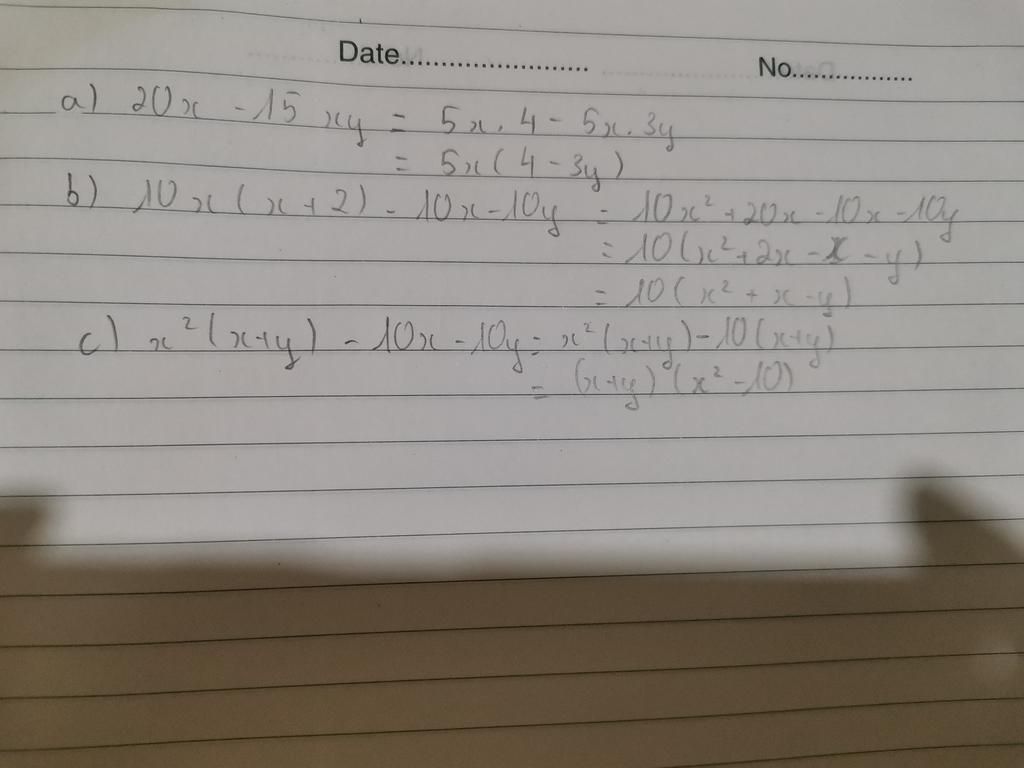 Date........................ No................
a) 20x - 15xy = 5x.4 - 5x.3y
= 5x(4 - 3y)
b) 10x(x+2) - 10x - 10y = 10x² + 20x - 10x - 10y
= 10(x² + 2x - x - y)
= 10(x² + x - y)
c) x²(x+y) - 10x - 10y = x²(x+y) - 10(x+y)
= (x+y)(x² - 10)